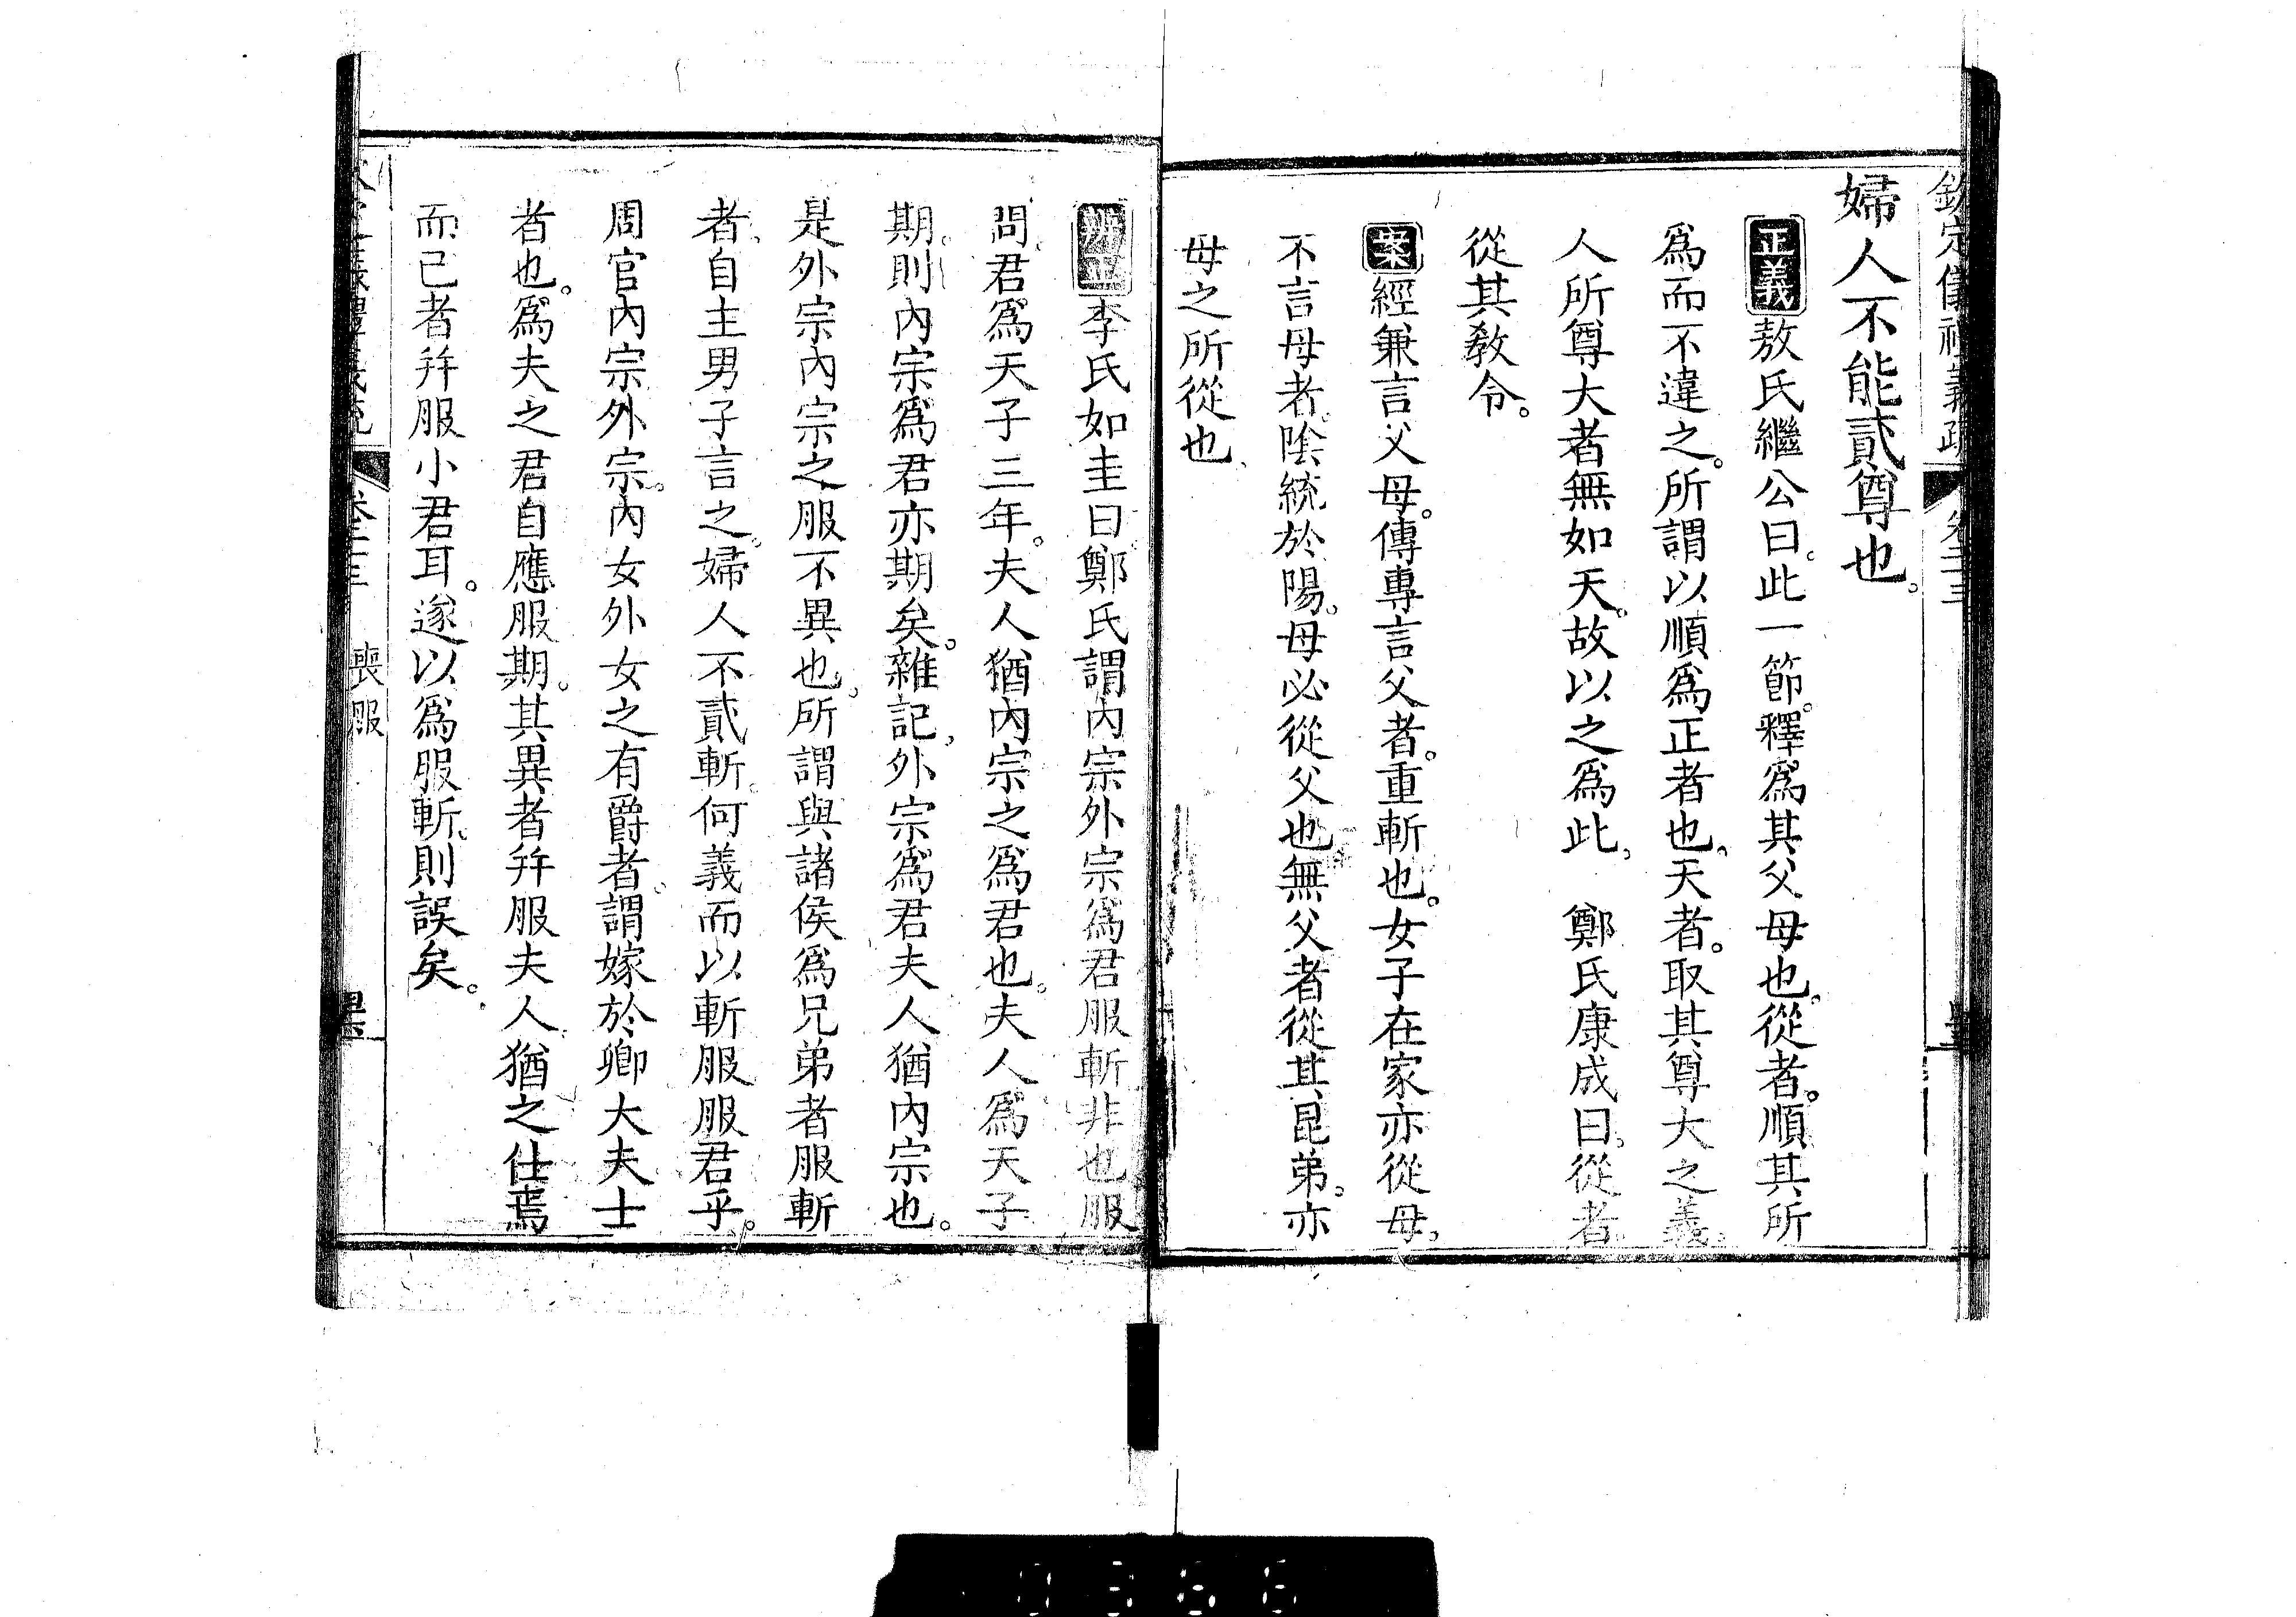 欽定儀禮義疏 卷二十三
婦人不能貳尊也。
正義敖氏繼公曰。此一節。釋爲其父母也。從者。順其所
爲而不違之。所謂以順爲正者也。天者。取其尊大之義。
人所尊大者無如天。故以之爲此。 鄭氏康成曰。從者
從其敎令。
案經兼言父母。傳專言父者。重斬也。女子在家亦從母。
不言母者。陰統於陽。母必從父也無父者從其昆弟。亦
母之所從也。
辨正李氏如圭曰。鄭氏謂内宗外宗爲君服斬非也服
問。君爲天子三年。夫人猶内宗之爲君也。夫人爲天子
期。則内宗爲君亦期矣。雜記。外宗爲君夫人猶内宗也。
是外宗内宗之服不異也。所謂與諸侯爲兄弟者服斬
者。自主男子言之。婦人不貳斬。何義而以斬服服君乎。
周官内宗外宗。内女外女之有爵者。謂嫁於卿大夫士
者也。爲夫之君自應服期。其異者幷服夫人。猶之仕焉
而已者幷服小君耳。遂以爲服斬。則誤矣。
喪服